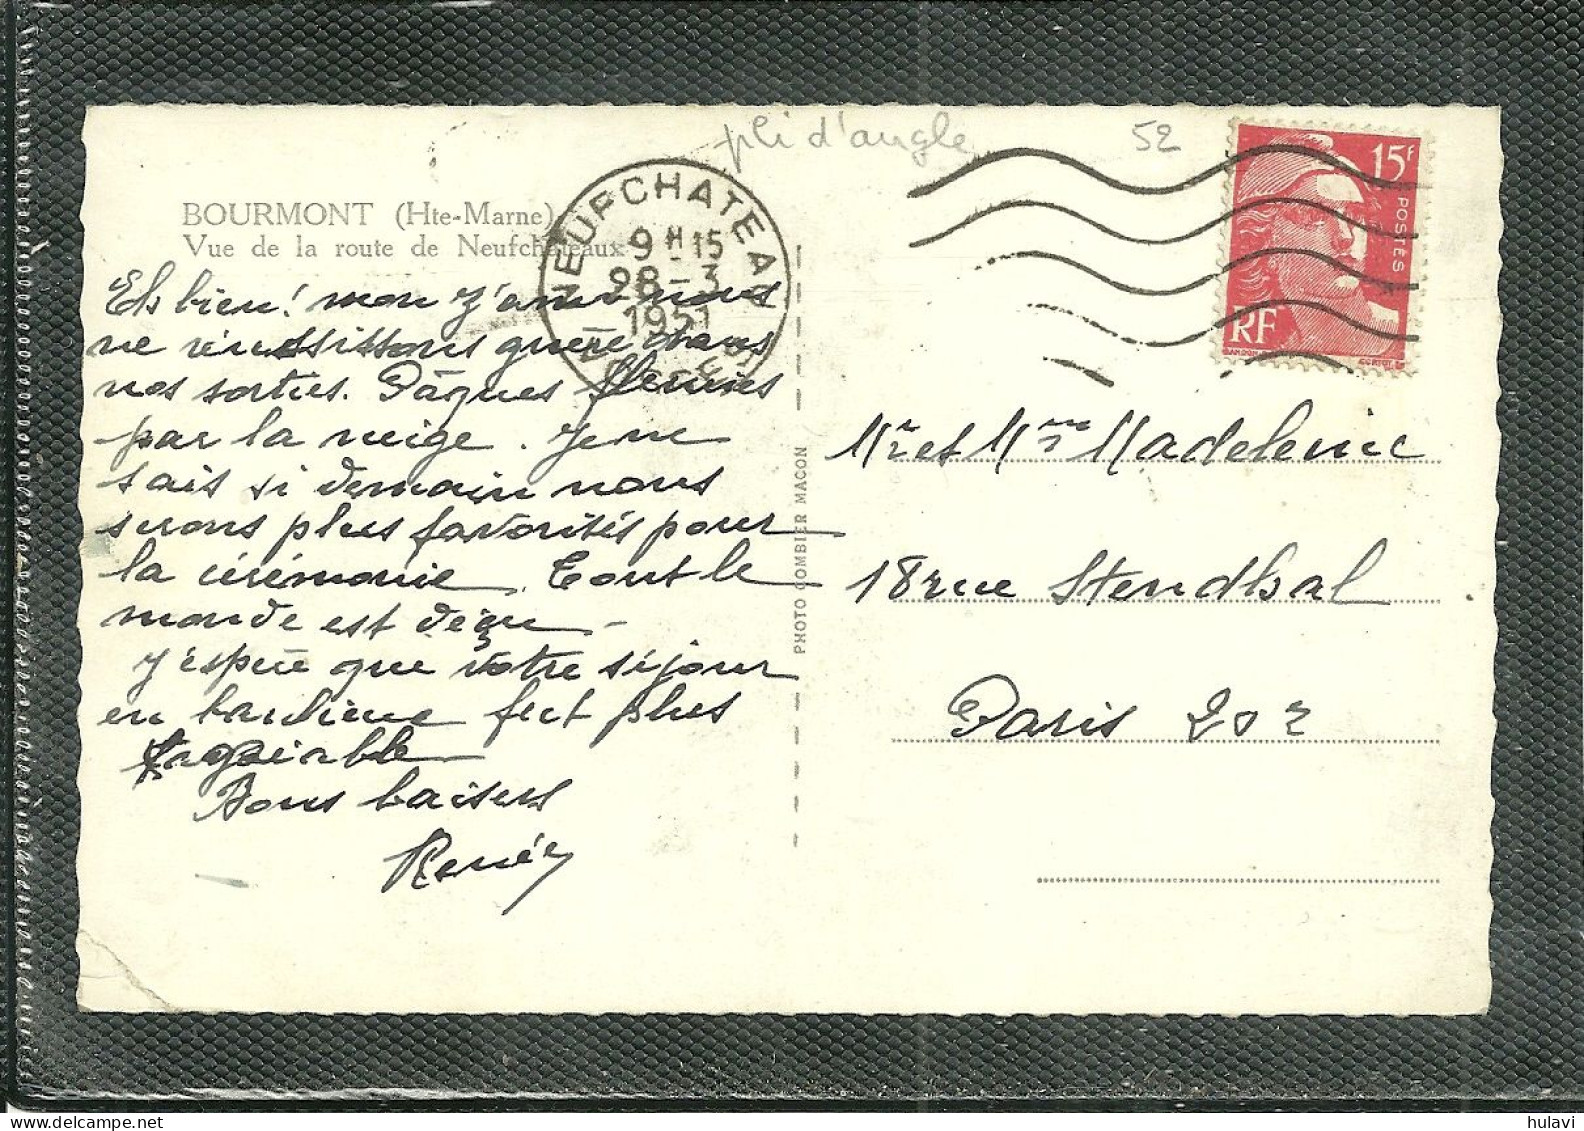 pli d'angle
52
BOURMONT (Hte-Marne)
Vue de la route de Neufchâteaux
NEUFCHATEAU
9 H 15
28 - 3
1951
VOSGES
15F
POSTES
RF
Eh bien ! mon nous
ne réussissons guère dans
nos sorties. Pâques fleuries
par la neige. Je ne
sais si demain nous
serons plus favorisés pour
la cérémonie. Tout le
monde est déçu -
J'espère que votre séjour
en banlieue fut plus
agréable
Bons baisers
Renée
PHOTO COMBIER MACON
Mr et Mme Madeleine
18 rue Stendhal
Paris 20e
hulavi